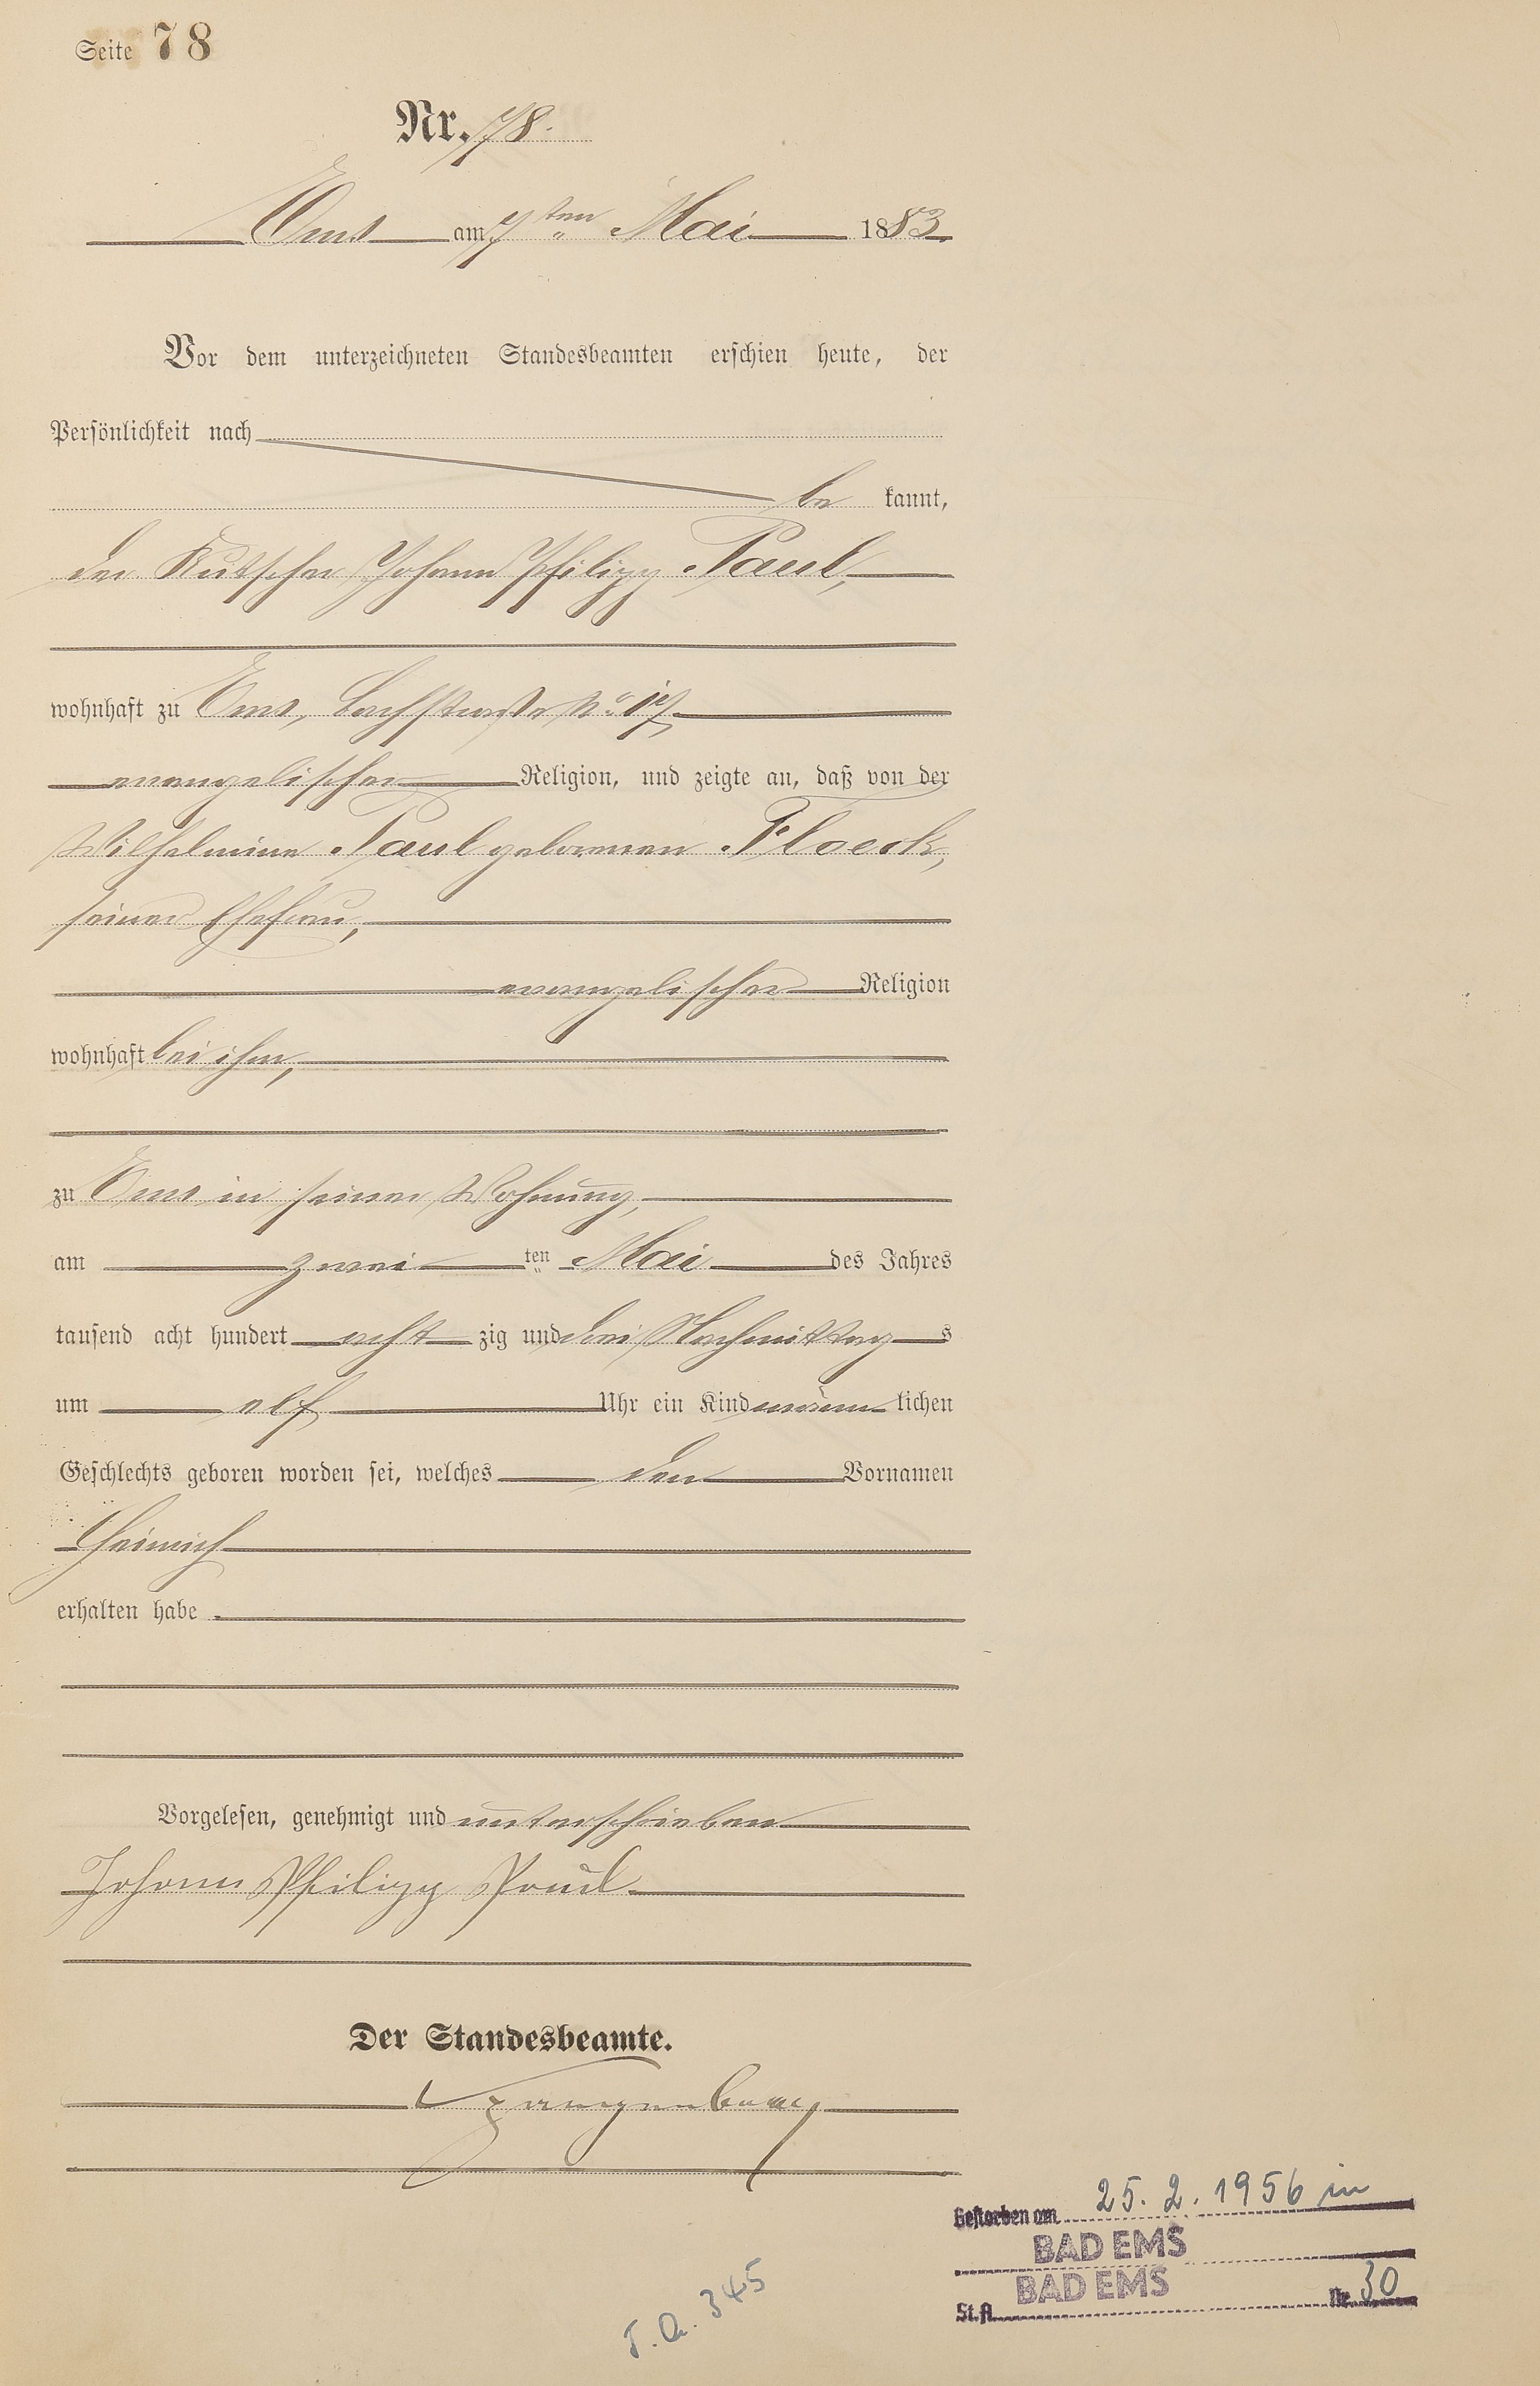 Seite 78
Nr. 78.
Ems am 7ten Mai 1883.
Vor dem unterzeichneten Standesbeamten erschien heute, der
Persönlichkeit nach
be kannt,
der Kutscher Johann Philipp Paul,
wohnhaft zu Ems, Bachstraße No 17,
evangelischer Religion, und zeigte an, daß von der
Wilhelmine Paul geborenen Floeck,
seiner Ehefrau,
evangelischer Religion
wohnhaft bei ihm,
zu Ems in seiner Wohnung,
am zwei ten Mai des Jahres
tausend acht hundert acht zig und drei Nachmittag s
um elf Uhr ein Kind männ lichen
Geschlechts geboren worden sei, welches den Vornamen
Heinrich
erhalten habe.
Vorgelesen, genehmigt und unterschrieben
Johann Philipp Paul
Der Standesbeamte.
Spangenberg
Gestorben am 25. 2. 1956 in
BAD EMS
St.A. BAD EMS Nr. 30
T.A. 345